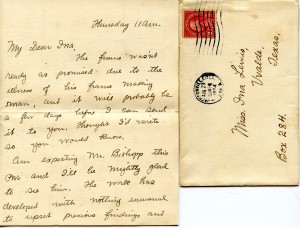 Thursday 11 am.
My Dear Ina,
The frame wasn't
ready as promised due to the
illness of his frame making
man, and it will probably be
a few days before I can send
it to you. Thought I'd write
so you would know.
Am expecting Mr. Bishopp this
Pm and I'll be mightly glad
to see him. The work has
developed with nothing unusual
to upset previous findings and
Miss. Ina Lewis,
Uvalde,
Texas.
Box 284.